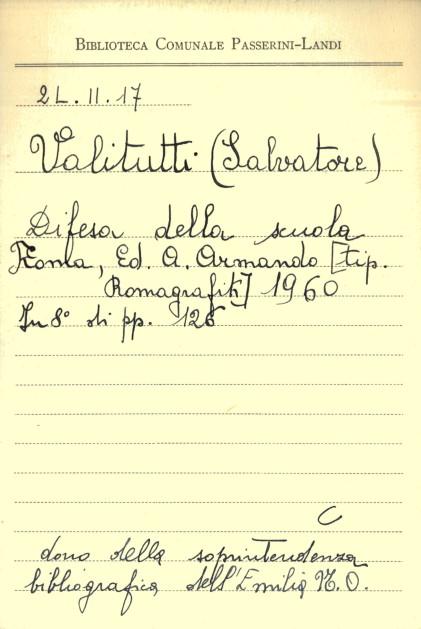 BIBLIOTECA COMUNALE PASSERINI-LANDI
2L.II.17
Valitutti (Salvatore)
Difesa della scuola
Roma, Ed. A. Armando [tip.
Romagrafik] 1960
In 8° di pp. 126
C
dono della soprintendenza
bibliografica dell'Emilia N.O.